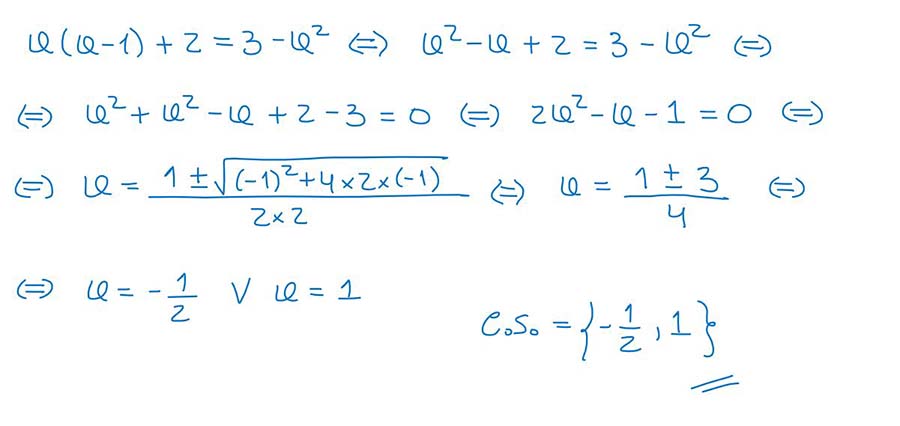 x(x-1)+2=3-x² ⇔ x²-x+2=3-x² ⇔
⇔ x²+x²-x+2-3=0 ⇔ 2x²-x-1=0 ⇔
⇔ x = (1±√((-1)²+4×2×(-1)))/(2×2) ⇔ x = (1±3)/4 ⇔
⇔ x = -1/2 ∨ x = 1
C.S. = {-1/2, 1}